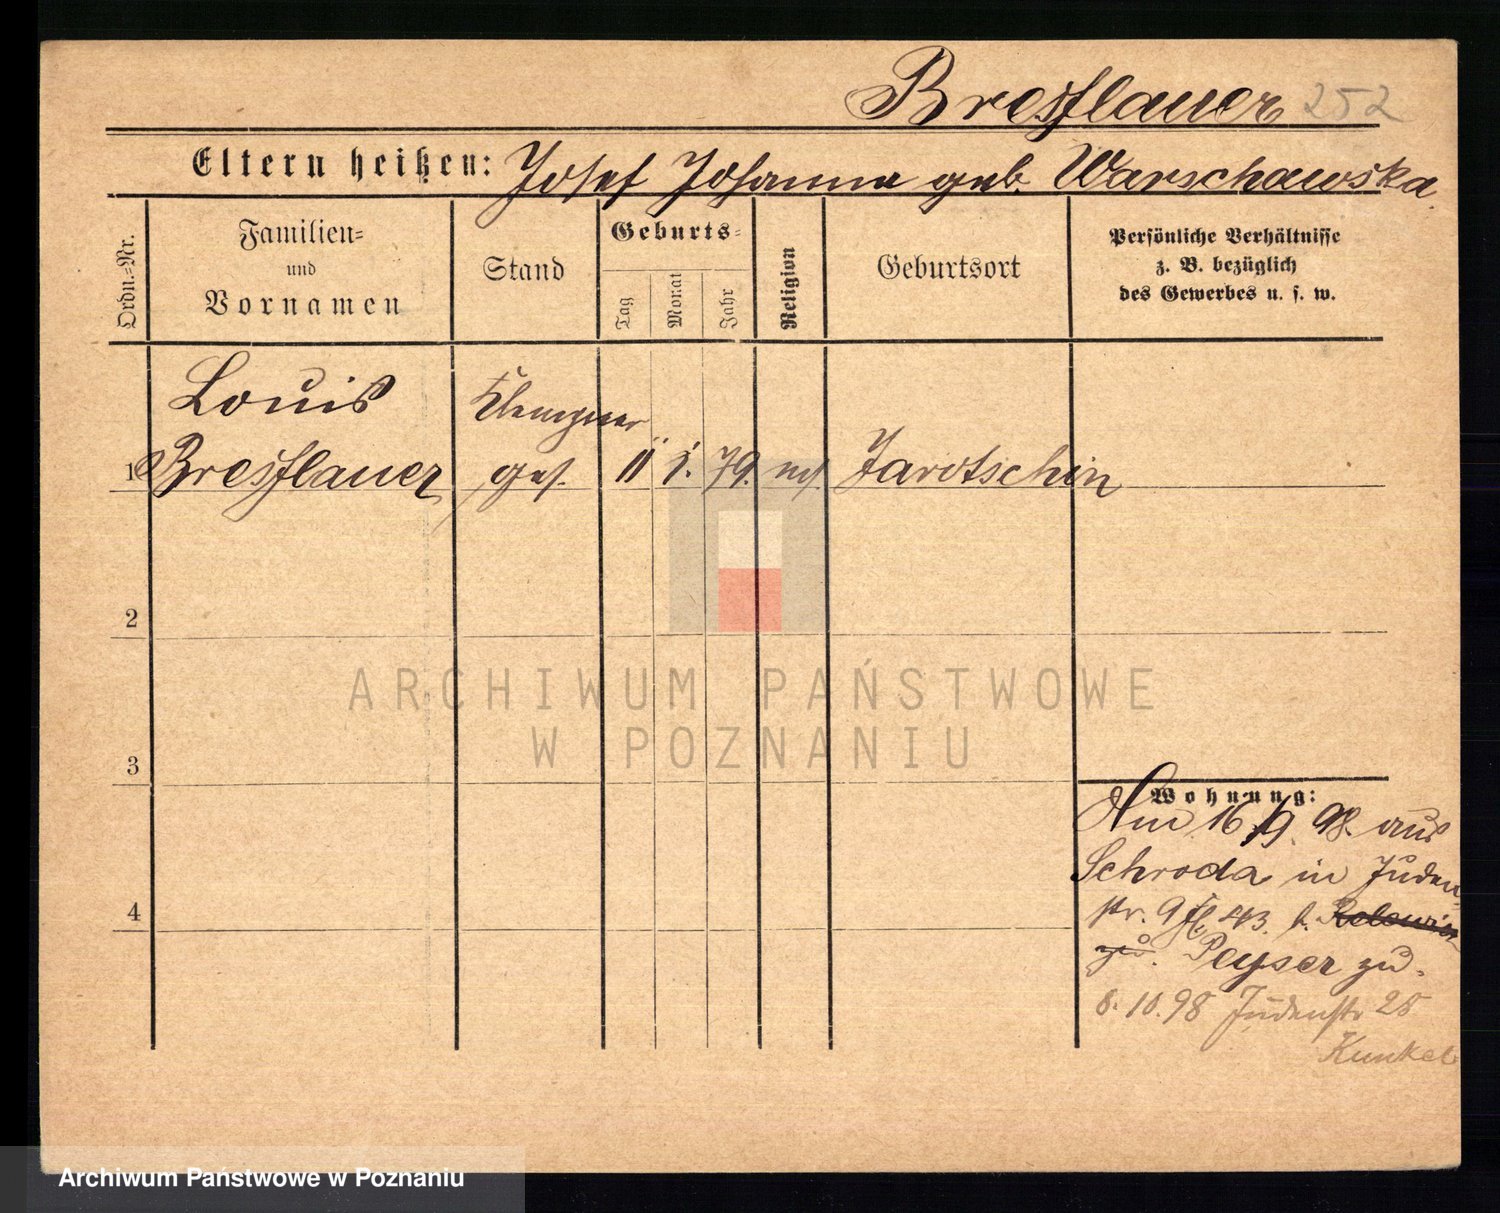 Bresslauer 252
Eltern heißen: Josef Johanna geb. Warschawska.
Ordn.-Nr.
Familien-
und
Vornamen
Stand
Geburts-
Tag
Monat
Jahr
Religion
Geburtsort
Persönliche Verhältnisse
z. B. bezüglich
des Gewerbes u. s. w.
Louis
Klempner
1 Bresslauer ges. 11 1. 79. Jarotschin
2
3
4
ARCHIWUM PAŃSTWOWE
W POZNANIU
Wohnung:
Am 16/9. 98. aus
Schroda in Juden-
str. 9
zu. Peyser zu.
8.10.98 Judenstr 25
Kunkel
Archiwum Państwowe w Poznaniu